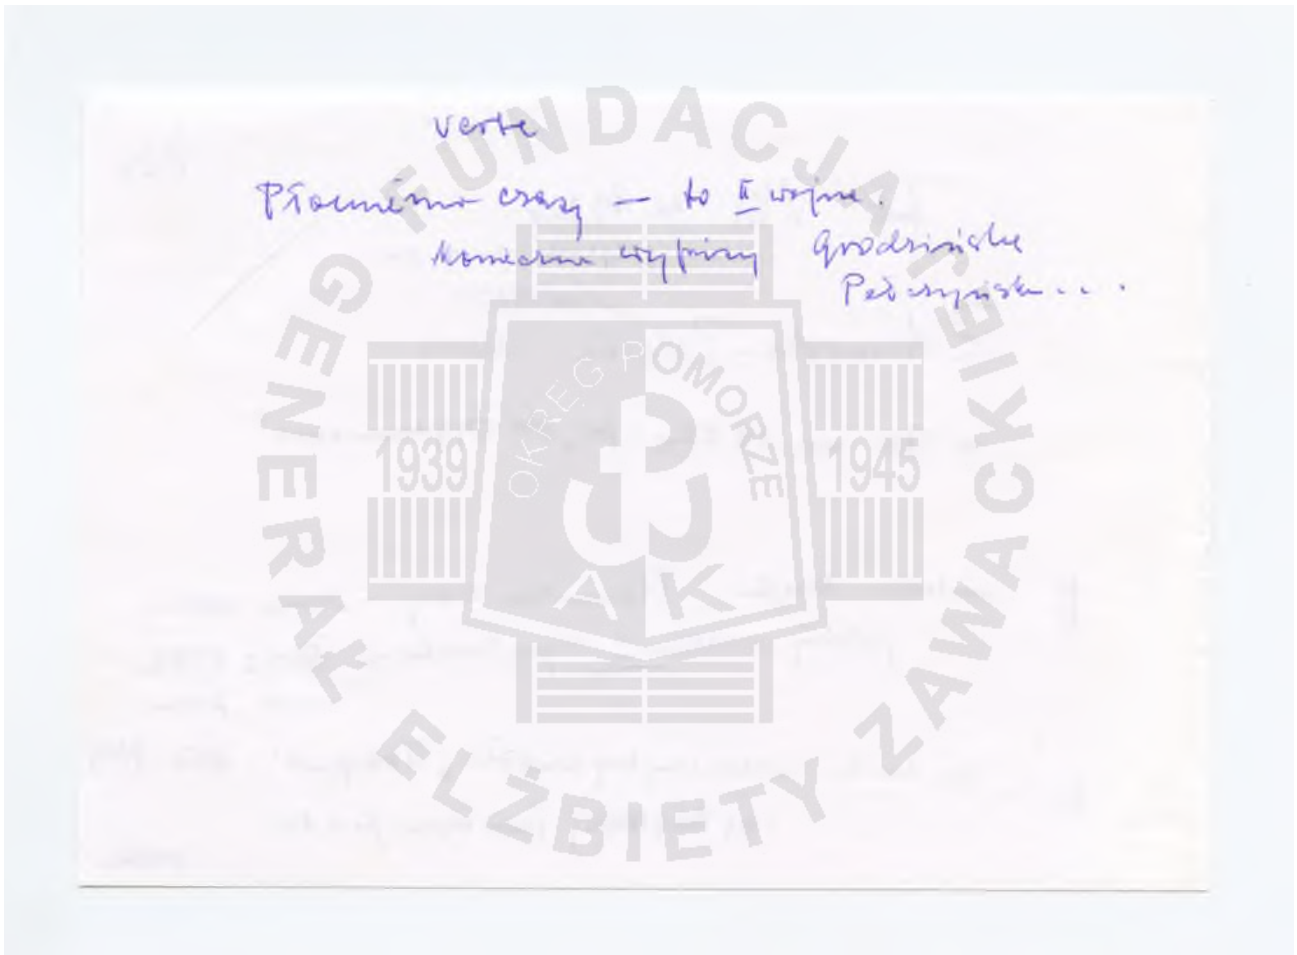 verte
Płomienne czasy — to II wojna.
Konieczne wypisy Grodzińska
Pełczyńska...
FUNDACJA
GENERAŁ ELŻBIETY ZAWACKIEJ
OKRĘG POMORZE
1939 1945
AK